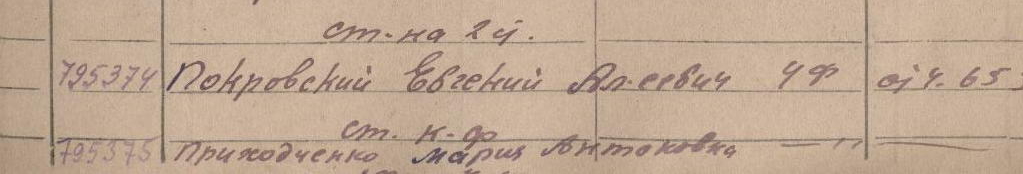 ст. на 2 ч.
795374 Покровский Евгений Ал-еевич ЧФ 4. 65
ст. к-ф
795375 Приходченко Мария Антоновна — " —